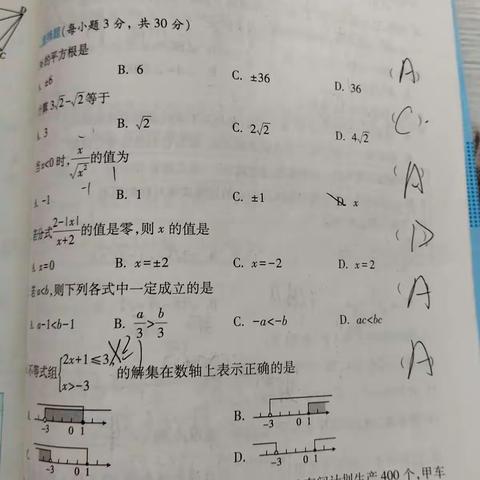 (每小题3分,共30分)
的平方根是
A. ±6 B. 6 C. ±36 D. 36 (A)
计算3√2-√2等于
A. 3 B. √2 C. 2√2 D. 4√2 (C)
当x<0时,x/√x²的值为
-1 1
A. -1 B. 1 C. ±1 D. x (A)
若分式(2-|x|)/(x+2)的值是零,则x的值是 (D)
A. x=0 B. x=±2 C. x=-2 D. x=2
若a<b,则下列各式中一定成立的是 (A)
A. a-1<b-1 B. a/3>b/3 C. -a<-b D. ac<bc
不等式组{2x+1≤3, x>-3 的解集在数轴上表示正确的是 (A)
A. -3 0 1 B. -3 0 1
C. -3 0 1 D. -3 0 1
计划生产400个,甲车